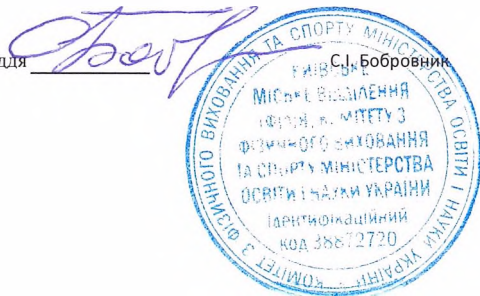 ддя С.І. Бобровник
КОМІТЕТ З ФІЗИЧНОГО ВИХОВАННЯ ТА СПОРТУ МІНІСТЕРСТВА ОСВІТИ І НАУКИ УКРАЇНИ
КИЇВСЬКЕ
МІСЬКЕ ВІДДІЛЕННЯ
(ФІЛІЯ) КОМІТЕТУ З
ФІЗИЧНОГО ВИХОВАННЯ
ТА СПОРТУ МІНІСТЕРСТВА
ОСВІТИ І НАУКИ УКРАЇНИ
Ідентифікаційний
код 38872720